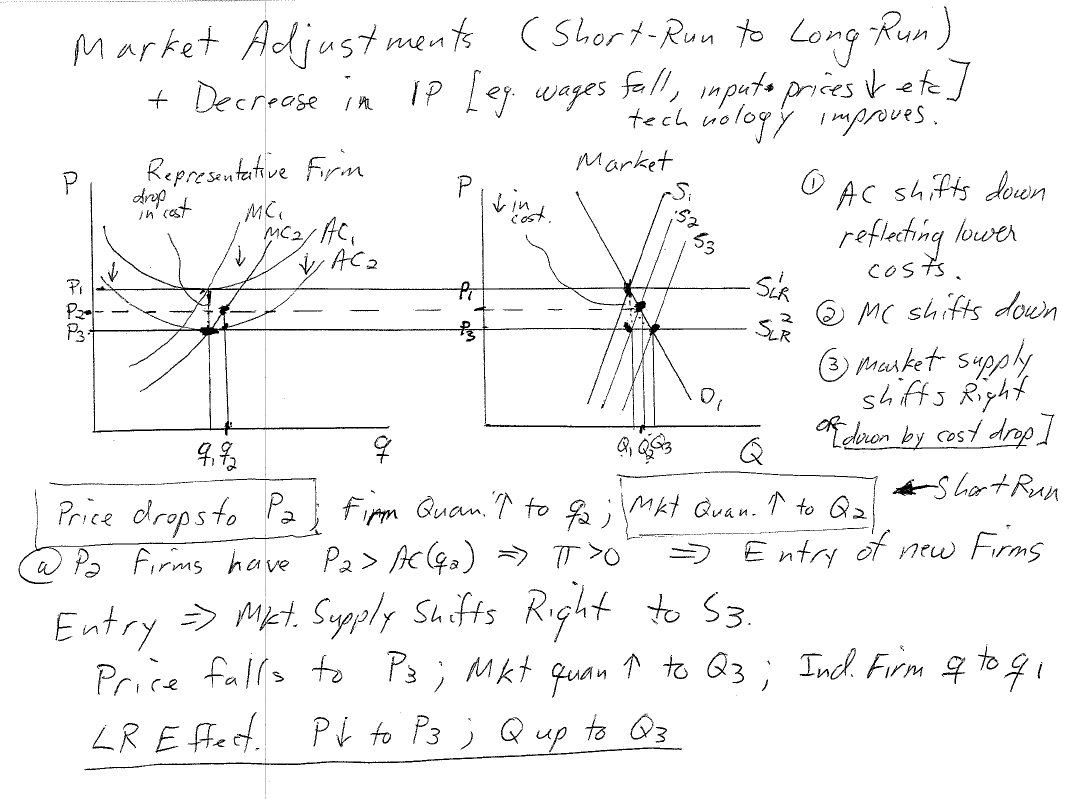 Market Adjustments (Short-Run to Long-Run)
+ Decrease in IP [eg. wages fall, input prices ↓ etc]
technology improves.
Representative Firm
P
drop
in cost
MC1
MC2
AC1
AC2
↓
↓
↓
P1
P2
P3
q1 q2
q
Market
P
↓ in
cost.
S1
S2
S3
P1
P3
S1LR
S2LR
D1
Q1 Q2 Q3
Q
① AC shifts down
reflecting lower
costs.
② MC shifts down
③ Market supply
shifts Right
OR [down by cost drop]
Price drops to P2; Firm Quan. ↑ to q2; Mkt Quan. ↑ to Q2 ← Short Run
@ P2 Firms have P2 > AC(q2) ⇒ π>0 ⇒ Entry of new Firms
Entry ⇒ Mkt. Supply Shifts Right to S3.
Price falls to P3; Mkt quan ↑ to Q3; Ind. Firm q to q1
LR Effect. P↓ to P3; Q up to Q3